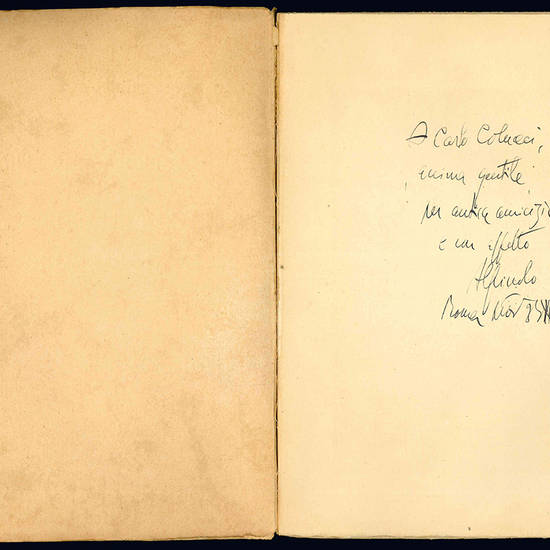 A Carlo Colucci,
anima gentile,
per antica amicizia
e con affetto
Roma